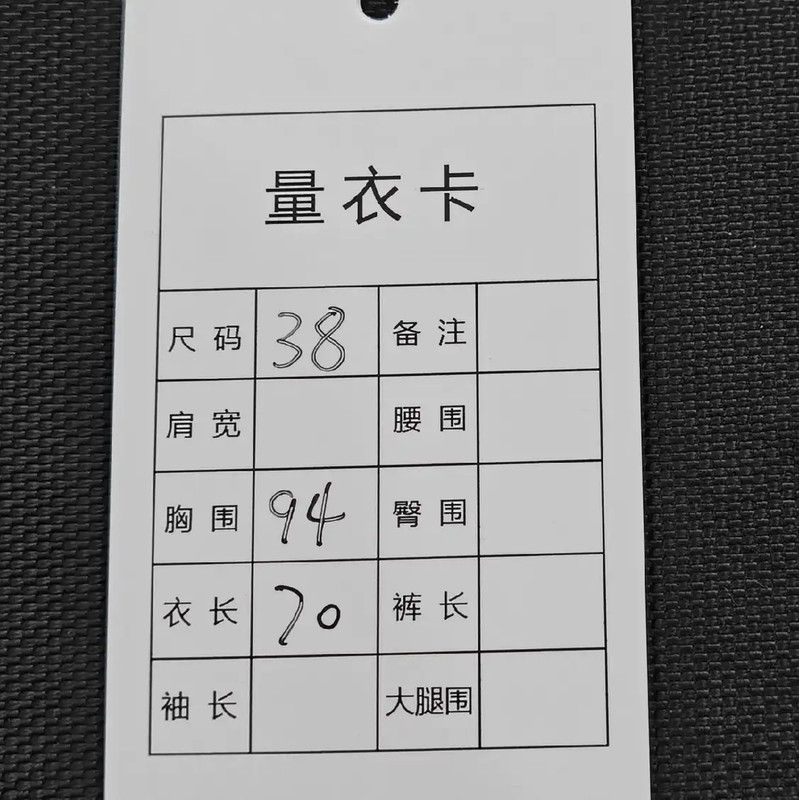 量衣卡
尺码 38 备注
肩宽 腰围
胸围 94 臀围
衣长 70 裤长
袖长 大腿围